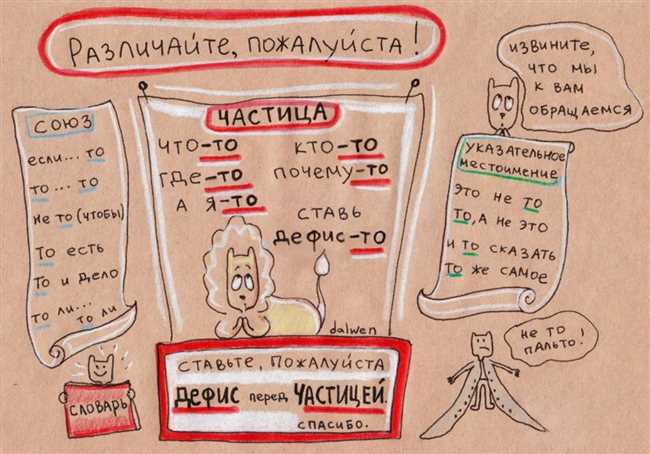 Различайте, пожалуйста!
СОЮЗ
если... то
то... то
не то (чтобы)
То есть
То и дело
то ли...
то ли
ЧАСТИЦА
ЧТО-ТО
КТО-ТО
ГДЕ-ТО
ПОЧЕМУ-ТО
А Я-ТО
СТАВЬ
Дефис-ТО
dalwen
СТАВЬТЕ, ПОЖАЛУЙСТА
ДЕФИС перед ЧАСТИЦЕЙ.
СПАСИБО.
СЛОВАРЬ
ИЗВИНИТЕ,
ЧТО МЫ
К ВАМ
ОБРАЩАЕМСЯ
УКАЗАТЕЛЬНОЕ
МЕСТОИМЕНИЕ
ЭТО НЕ ТО
ТО, А НЕ ЭТО
И ТО СКАЗАТЬ
ТО ЖЕ САМОЕ
НЕ ТО
ПАЛЬТО!